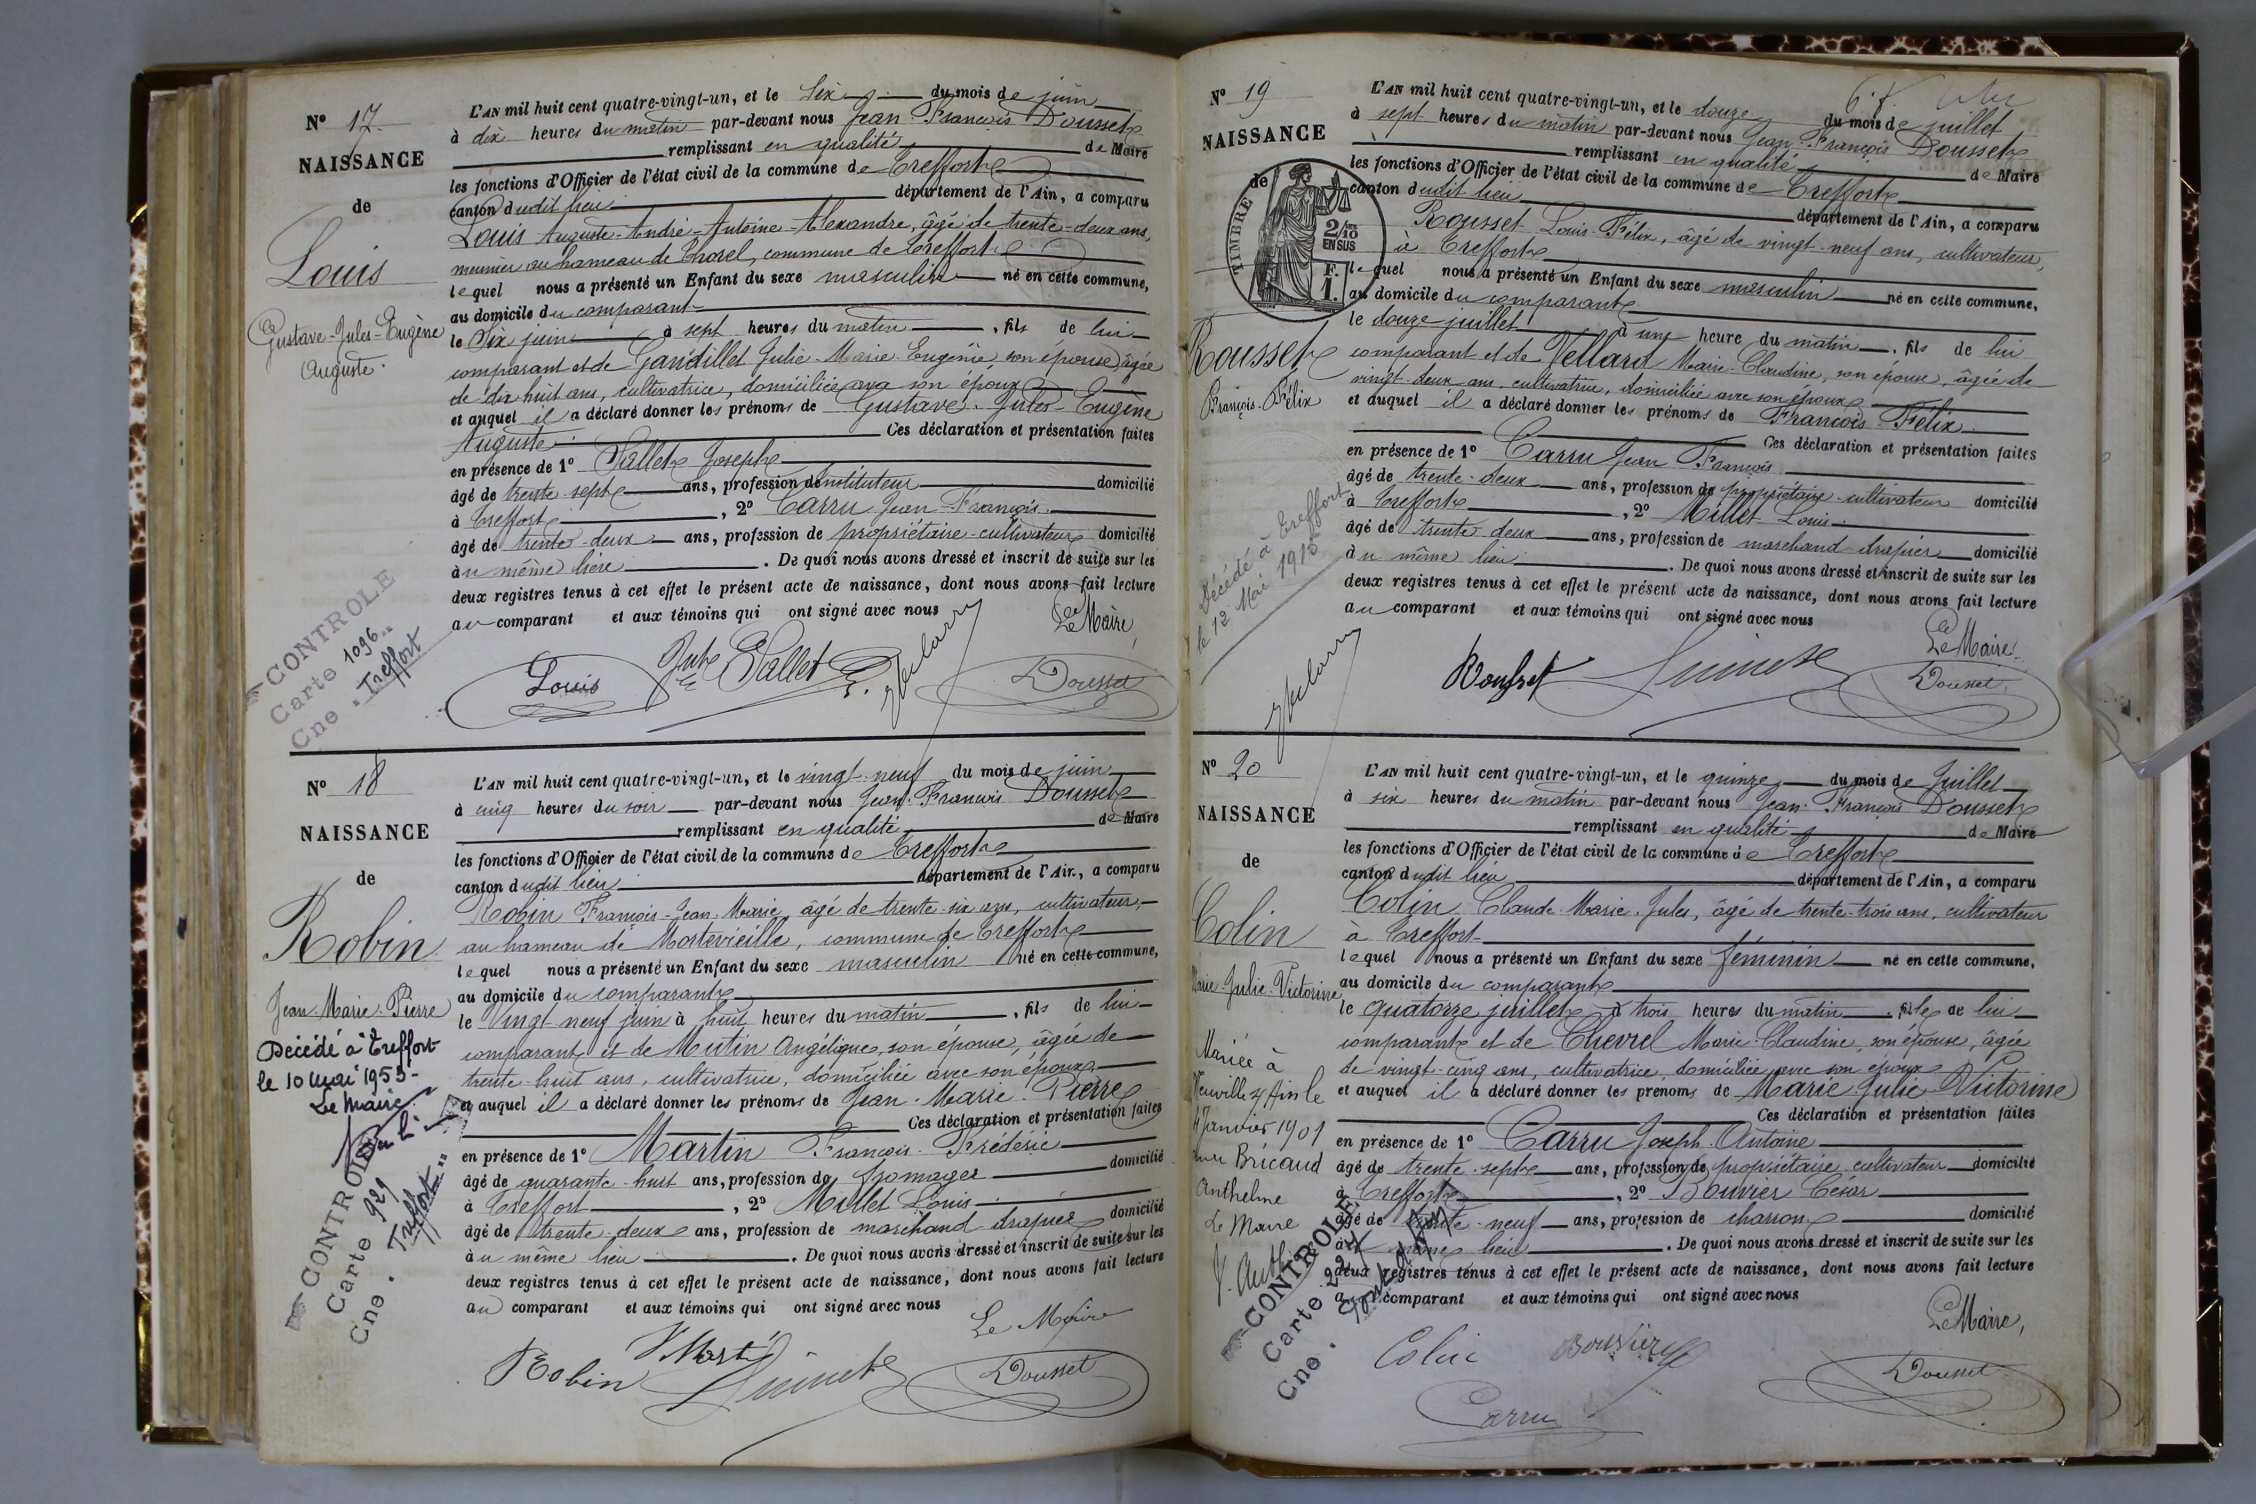 N° 17.
NAISSANCE
de
Louis
Gustave-Jules-Eugène
Auguste.
CONTROLE
Carte 1096
Cne. Treffort
L'AN mil huit cent quatre-vingt-un, et le Six du mois de juin
à dix heures du matin par-devant nous Jean François Dousset
remplissant en qualité de Maire
les fonctions d'Officier de l'état civil de la commune de Treffort
canton dudit lieu département de l'Ain, a comparu
Louis Auguste-André-Antoine-Alexandre, âgé de trente-deux ans,
meunier au hameau de Thorel, commune de Treffort
lequel nous a présenté un Enfant du sexe masculin né en cette commune,
au domicile du comparant
le Six juin à sept heures du matin, fils de lui
comparant et de Gandillet Julie-Marie-Eugénie son épouse, âgée
de dix huit ans, cultivatrice, domiciliée avec son époux
et auquel il a déclaré donner les prénoms de Gustave-Jules-Eugène
Auguste. Ces déclaration et présentation faites
en présence de 1° Sallet Joseph
âgé de trente-sept ans, profession d'instituteur domicilié
à Treffort, 2° Carru Jean-François.
âgé de trente-deux ans, profession de propriétaire-cultivateur domicilié
au même lieu. De quoi nous avons dressé et inscrit de suite sur les
deux registres tenus à cet effet le présent acte de naissance, dont nous avons fait lecture
au comparant et aux témoins qui ont signé avec nous
Le Maire,
Louis Sallet Dousset
N° 18
NAISSANCE
de
Robin
Jean-Marie-Pierre
Décédé à Treffort
le 10 Mai 1953-
Le Maire
CONTROLE
Carte 929
Cne. Treffort
L'AN mil huit cent quatre-vingt-un, et le vingt-neuf du mois de juin
à cinq heures du soir par-devant nous Jean-François Dousset
remplissant en qualité de Maire
les fonctions d'Officier de l'état civil de la commune de Treffort
canton dudit lieu département de l'Ain, a comparu
Robin François-Jean-Marie, âgé de trente-six ans, cultivateur,
au hameau de Mortevieille, commune de Treffort
lequel nous a présenté un Enfant du sexe masculin né en cette commune,
au domicile du comparant
le Vingt-neuf juin à huit heures du matin, fils de lui
comparant et de Mutin Angélique, son épouse, âgée de
trente-huit ans, cultivatrice, domiciliée avec son époux
et auquel il a déclaré donner les prénoms de Jean-Marie-Pierre
Ces déclaration et présentation faites
en présence de 1° Martin François-Frédéric
âgé de quarante-huit ans, profession de fromager domicilié
à Treffort, 2° Millet Louis
âgé de trente-deux ans, profession de marchand-drapier domicilié
au même lieu. De quoi nous avons dressé et inscrit de suite sur les
deux registres tenus à cet effet le présent acte de naissance, dont nous avons fait lecture
au comparant et aux témoins qui ont signé avec nous
Le Maire
Robin Dousset
N° 19
NAISSANCE
de
TIMBRE
2/10
EN SUS
F.
1.
Rousset
François-Félix
Décédé à Treffort
le 12 Mai
L'AN mil huit cent quatre-vingt-un, et le douze du mois de juillet
à sept heures du matin par-devant nous Jean-François Dousset
remplissant en qualité de Maire
les fonctions d'Officier de l'état civil de la commune de Treffort
canton dudit lieu département de l'Ain, a comparu
Rousset Louis-Félix, âgé de vingt-neuf ans, cultivateur,
à Treffort
lequel nous a présenté un Enfant du sexe masculin né en cette commune,
au domicile du comparant
le douze juillet à une heure du matin, fils de lui
comparant et de Vellard Marie-Claudine, son épouse, âgée de
vingt-deux ans, cultivatrice, domiciliée avec son époux
et auquel il a déclaré donner les prénoms de François Félix
Ces déclaration et présentation faites
en présence de 1° Carru Jean François
âgé de trente-deux ans, profession de propriétaire-cultivateur domicilié
à Treffort, 2° Millet Louis
âgé de trente deux ans, profession de marchand drapier domicilié
au même lieu. De quoi nous avons dressé et inscrit de suite sur les
deux registres tenus à cet effet le présent acte de naissance, dont nous avons fait lecture
au comparant et aux témoins qui ont signé avec nous
Le Maire.
Rousset Dousset
N° 20
NAISSANCE
de
Colin
Marie-Julie-Victorine
Mariée à
Neuville s/ Ain le
Janvier 1901
Bricaud
Anthelme
Le Maire
CONTROLE
Carte
Cne.
L'AN mil huit cent quatre-vingt-un, et le quinze du mois de Juillet
à six heures du matin par-devant nous Jean François Dousset
remplissant en qualité de Maire
les fonctions d'Officier de l'état civil de la commune de Treffort
canton dudit lieu département de l'Ain, a comparu
Colin Claude-Marie-Jules, âgé de trente-trois ans, cultivateur
à Treffort
lequel nous a présenté un Enfant du sexe féminin né en cette commune,
au domicile du comparant
le quatorze juillet à trois heures du matin, fille de lui
comparant et de Chevrel Marie-Claudine, son épouse, âgée
de vingt-cinq ans, cultivatrice, domiciliée avec son époux
et auquel il a déclaré donner les prénoms de Marie Julie Victorine
Ces déclaration et présentation faites
en présence de 1° Carru Joseph-Antoine
âgé de trente-sept ans, profession de propriétaire cultivateur domicilié
à Treffort, 2° Bouvier César
âgé de trente-neuf ans, profession de charron domicilié
au même lieu. De quoi nous avons dressé et inscrit de suite sur les
deux registres tenus à cet effet le présent acte de naissance, dont nous avons fait lecture
au comparant et aux témoins qui ont signé avec nous
Le Maire,
Colin Bouvier Dousset
Carru